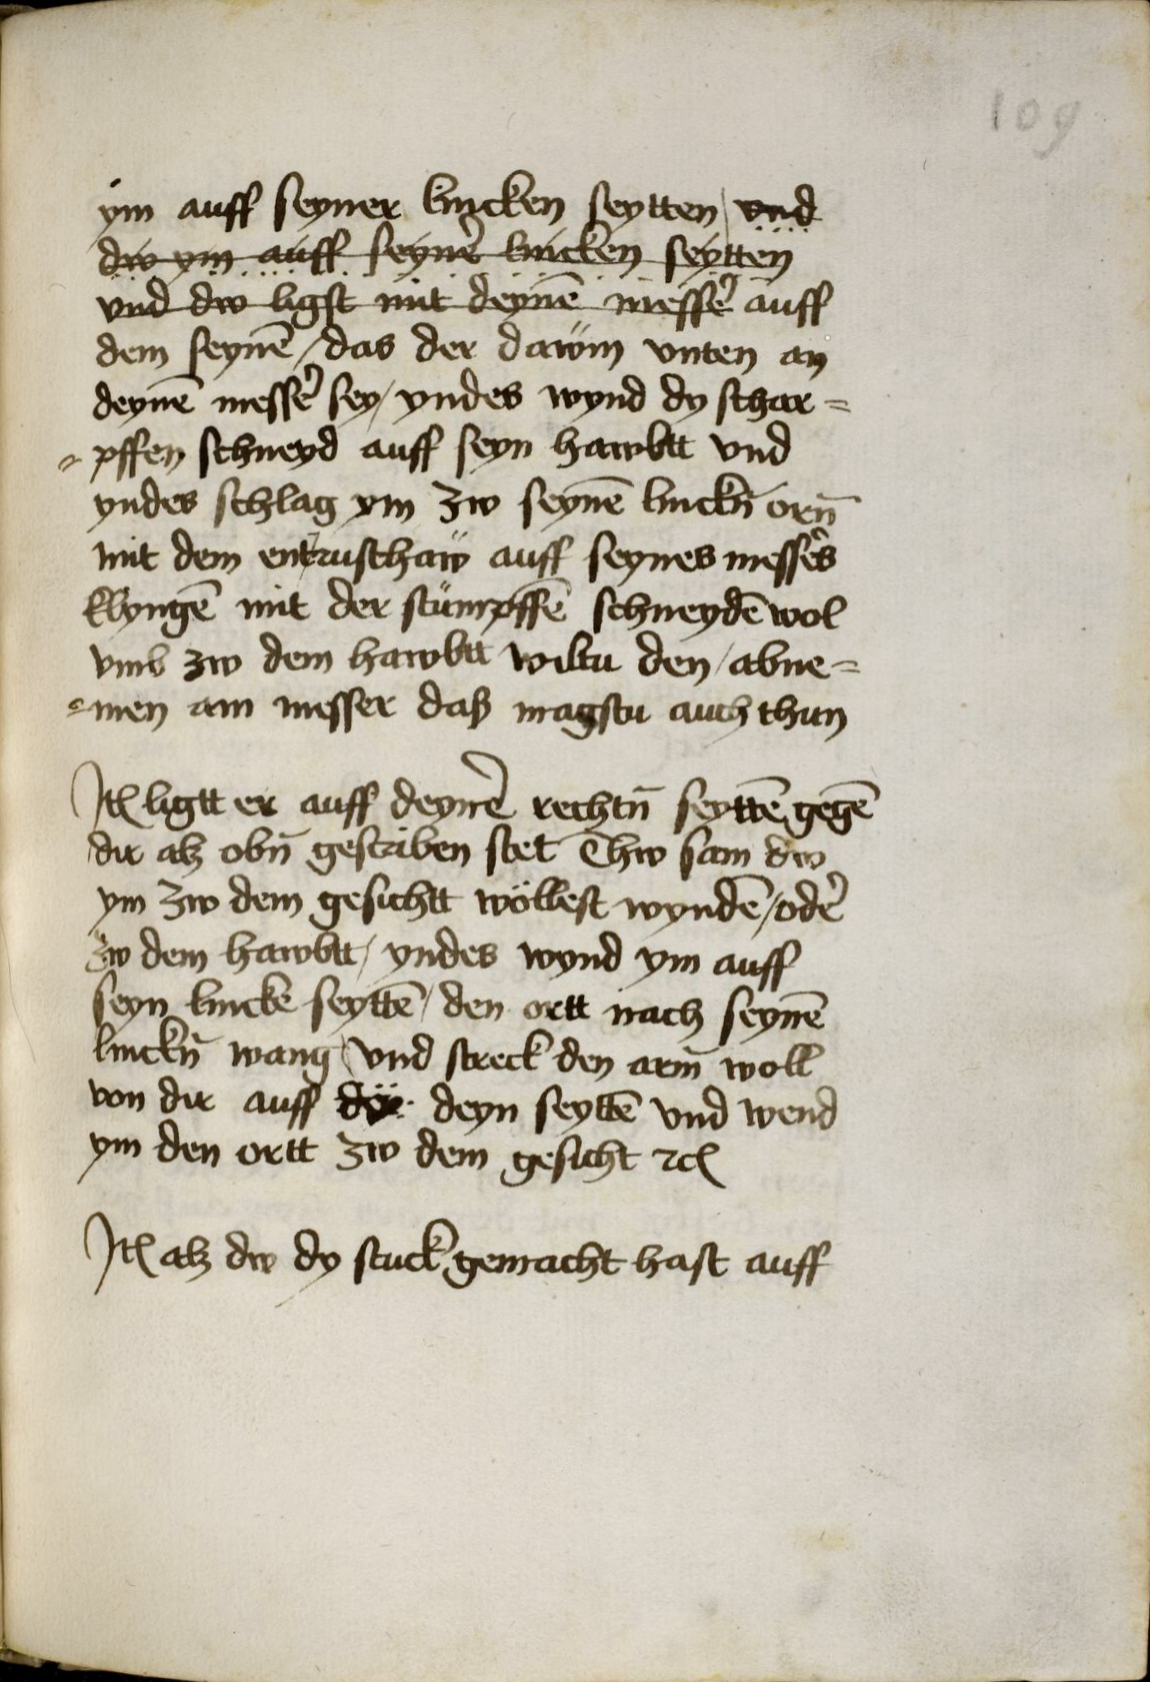 109
ym auff seyner lincken seytten / vnd
dw ym auff seyne͛ lincken seytten
vnd dw ligst mit deynē messe͛ auff
dem seynē / das der dawm̈ vnten an
deynē messe͛ sey / yndes wynd dy schar=
=pffen schneyd auff seyn hawbtt vnd
yndes schlag ym zw seynē linckn̄ orn̄
mit dem entrusthaẅ auff seynes messe͛s
klyngē mit der stümpffē schneydē wol
vmb zw dem hawbtt wiltu den / abne=
=men am messer daß magstu auch thun
Jtē ligtt er auff deyne͛ rechtn̄ seyttē gegē
dir alz obn̄ gescriben stet Thw sam dw
ym zw dem gesichtt wöllest wyndē / ode͛
zw dem hawbtt / yndes wynd ym auff
seyn lincke seyttē / den ortt nach seynē
linckn̄ wang / vnd streck den arm̄ woll
von dir auff deyn seyttē vnd wend
ym den ortt zw dem gesicht ꝛcͣ
Jtē alz dw dy stuck gemacht hast auff